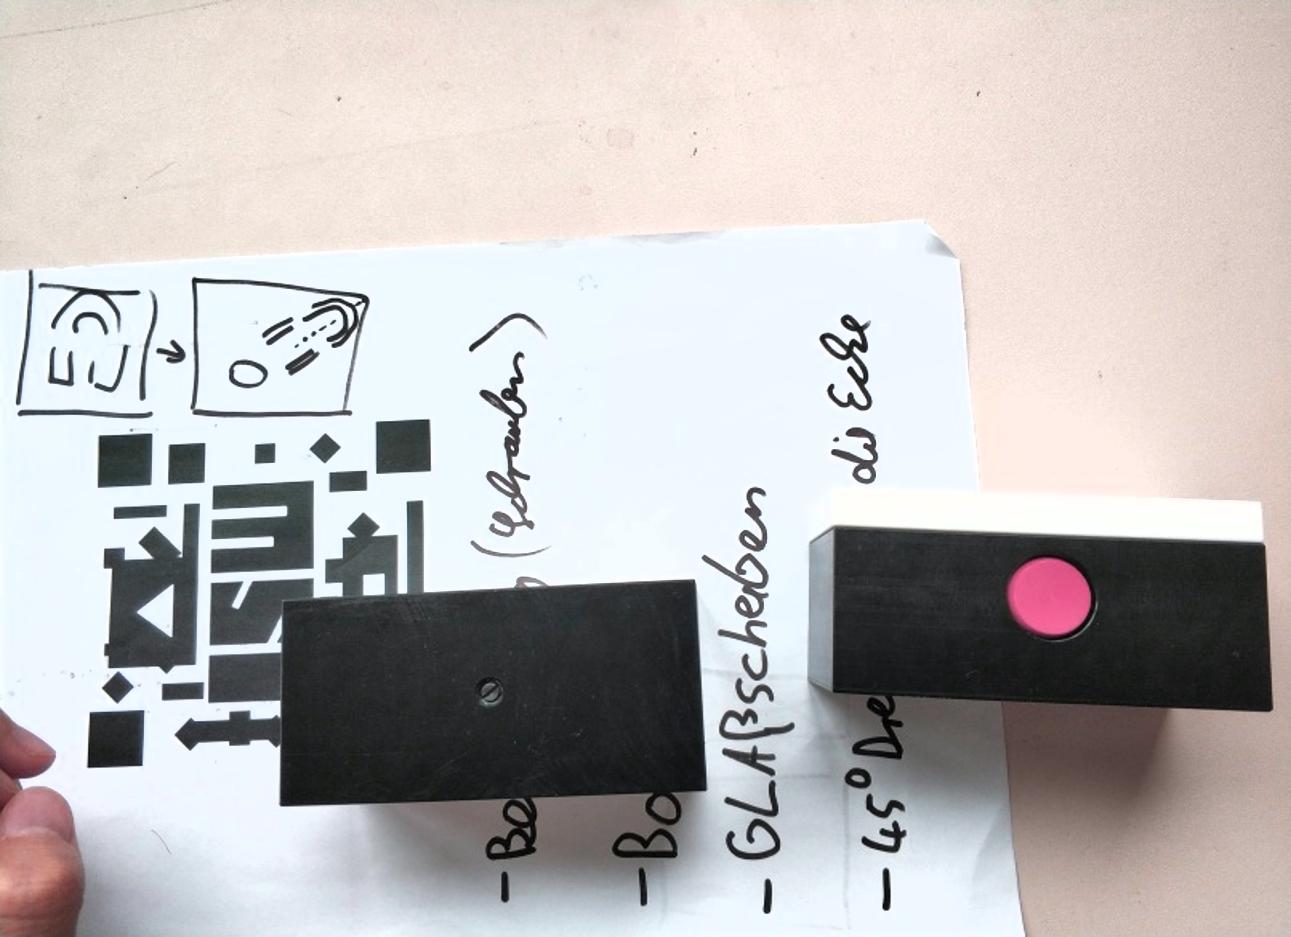 - Be (Schrauben)
- Bo
- GLAßscheiben
- 45° Dre die Ecke